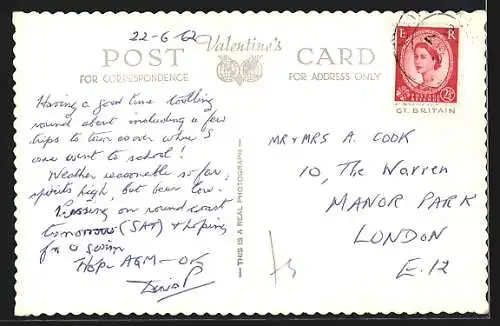 22-6-62
POST Valentine's CARD
FOR CORRESPONDENCE FOR ADDRESS ONLY
E R
2½D
GT. BRITAIN
Having a good time tootling
round about including a few
trips to where I
once went to school!
Weather reasonable so far,
spirits high, but beer low.
Pressing on round coast
tomorrow (SAT) & hoping
for a swim
Hope AGM - OK
MR & MRS A. COOK
10, The Warren
MANOR PARK
LONDON
E.12
THIS IS A REAL PHOTOGRAPH